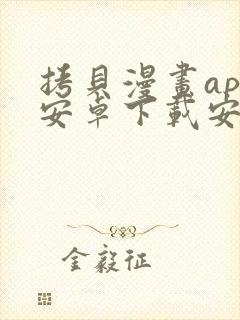 拷貝漫畫ap
安卓下載安
金毅征